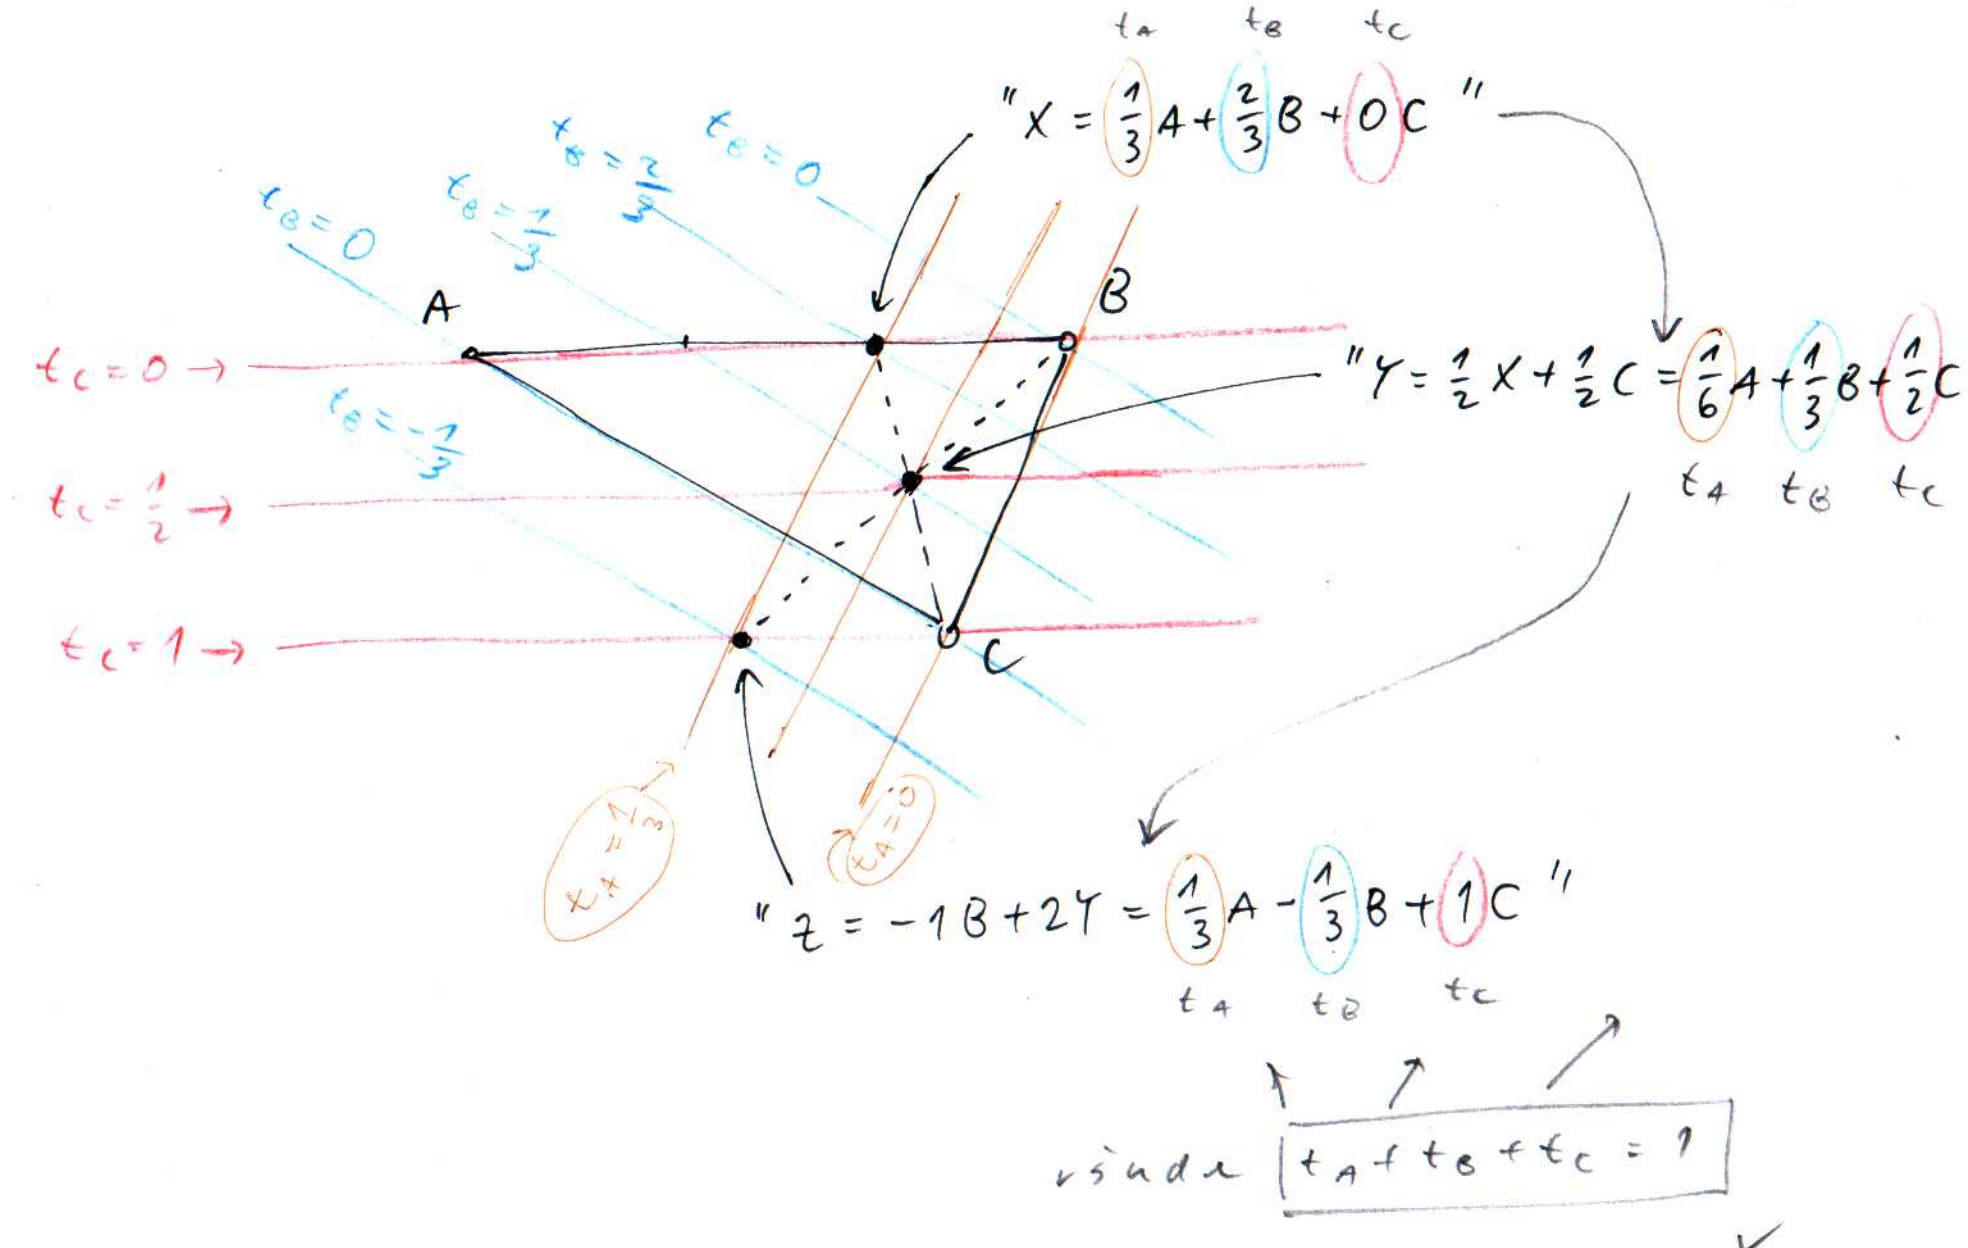 t_A t_B t_C
"X = 1/3 A + 2/3 B + 0 C"
t_B = 0
t_B = 1/3
t_B = 2/3
t_B = 0
A
B
t_C = 0 →
"Y = 1/2 X + 1/2 C = 1/6 A + 1/3 B + 1/2 C
t_A t_B t_C
t_B = -1/3
t_C = 1/2 →
t_C = 1 →
C
t_A = 1/3
t_A = 0
"Z = -1B + 2Y = 1/3 A - 1/3 B + 1 C"
t_A t_B t_C
všude t_A + t_B + t_C = 1